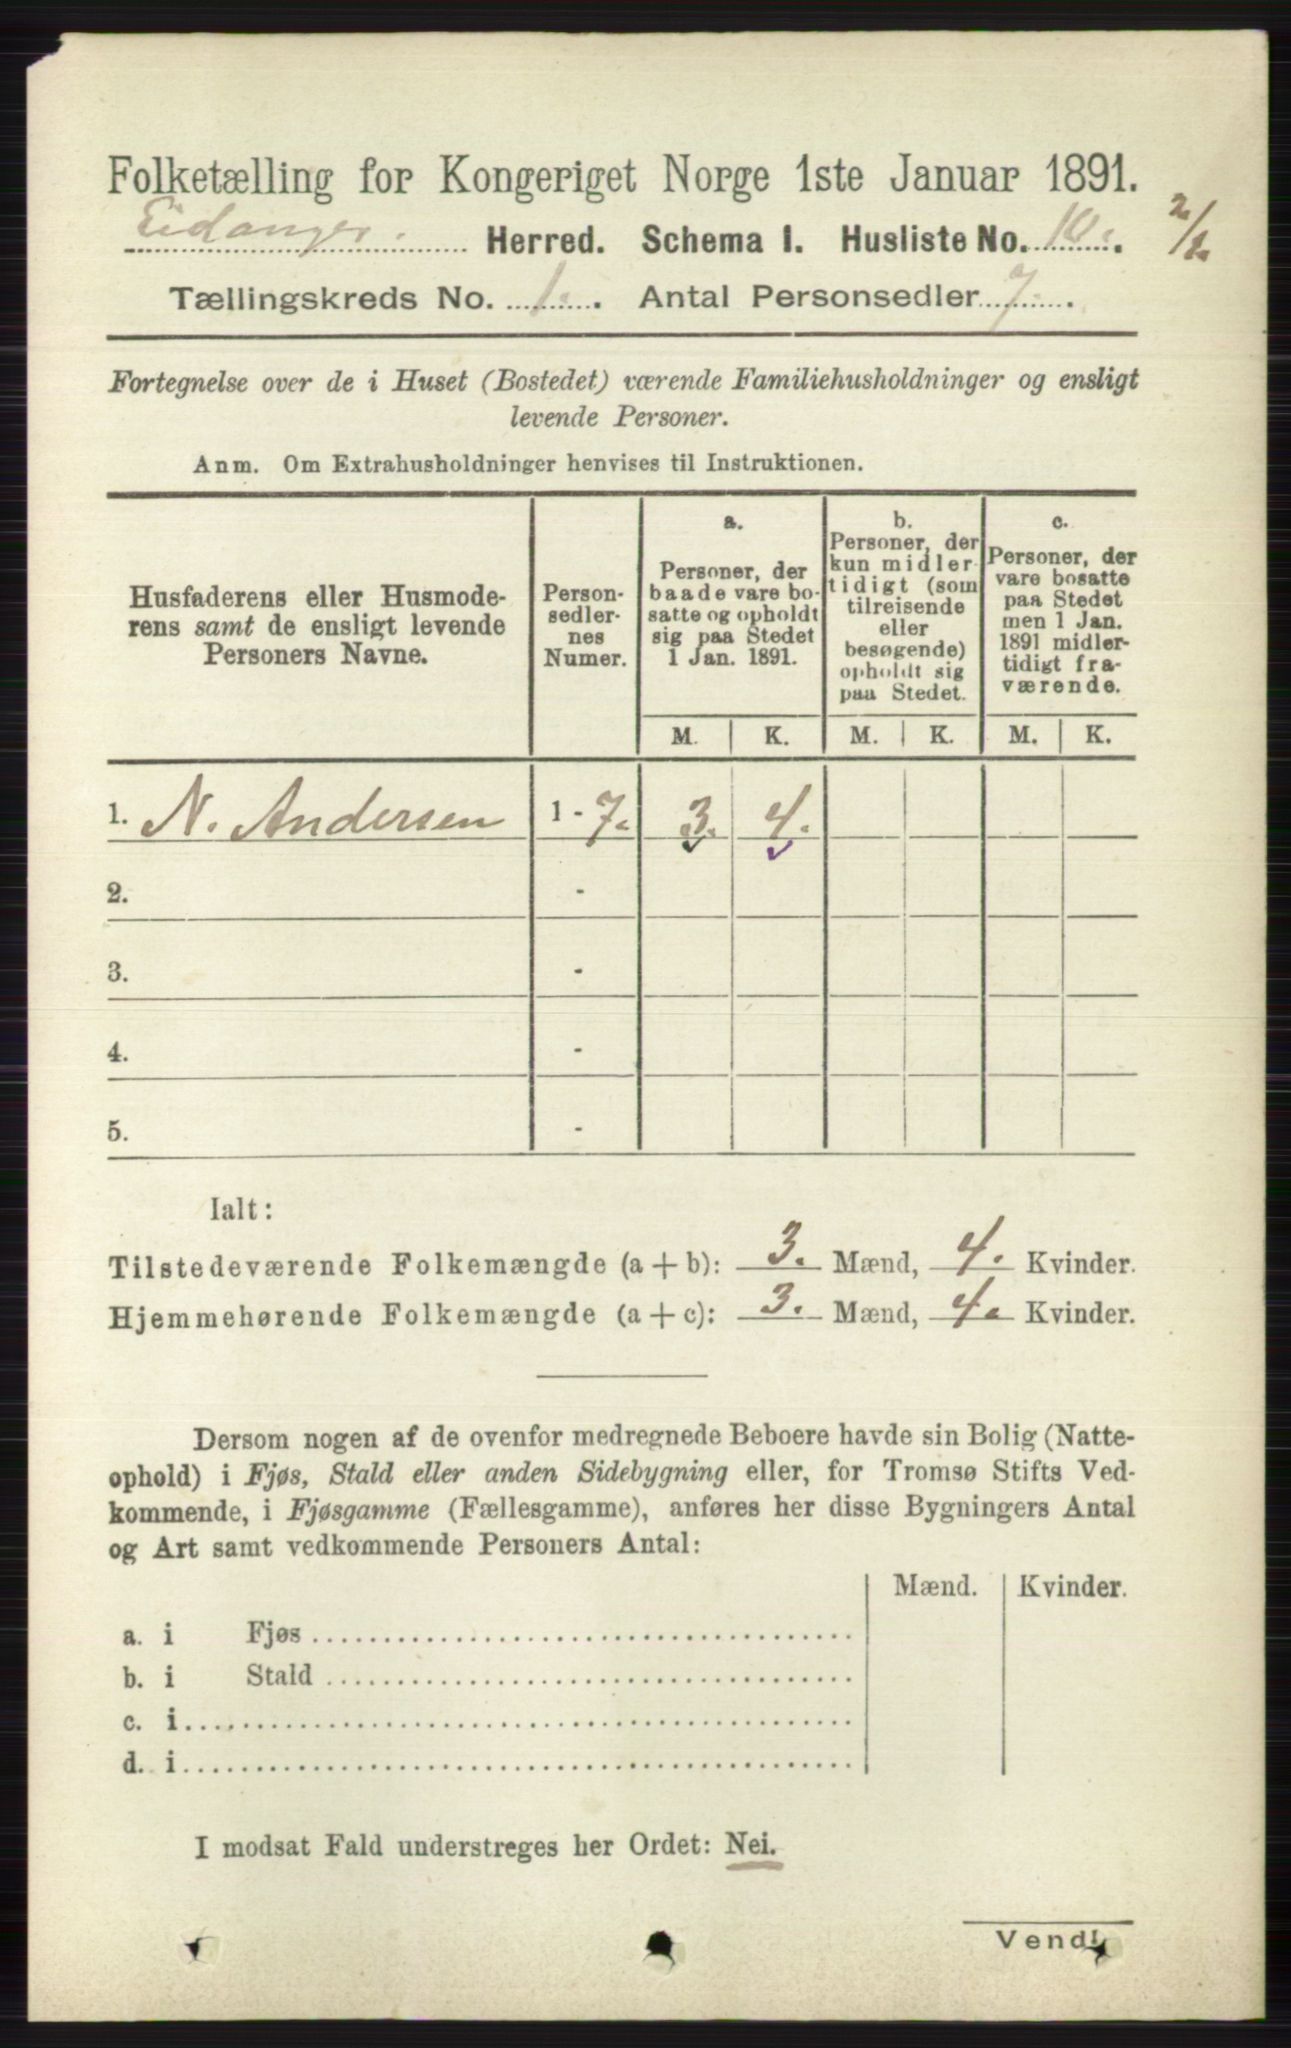 Folketælling for Kongeriget Norge 1ste Januar 1891.
Eidanger. Herred. Schema I. Husliste No. 10. 2/2
Tællingskreds No. 1. Antal Personsedler 7.
Fortegnelse over de i Huset (Bostedet) værende Familiehusholdninger og ensligt
levende Personer.
Anm. Om Extrahusholdninger henvises til Instruktionen.
Husfaderens eller Husmode-
rens samt de ensligt levende
Personers Navne.
Person-
sedler-
nes
Numer.
a.
Personer, der
baade vare bo-
satte og opholdt
sig paa Stedet
1 Jan. 1891.
b.
Personer, der
kun midler-
tidigt (som
tilreisende
eller
besøgende)
opholdt sig
paa Stedet.
c.
Personer, der
vare bosatte
paa Stedet
men 1 Jan.
1891 midler-
tidigt fra-
værende.
M. K. M. K. M. K.
1. N. Andersen 1 - 7. 3. 4.
2. -
3. -
4. -
5. -
Ialt:
Tilstedeværende Folkemængde (a + b): 3. Mænd, 4. Kvinder.
Hjemmehørende Folkemængde (a + c): 3. Mænd, 4. Kvinder.
Dersom nogen af de ovenfor medregnede Beboere havde sin Bolig (Natte-
ophold) i Fjøs, Stald eller anden Sidebygning eller, for Tromsø Stifts Ved-
kommende, i Fjøsgamme (Fællesgamme), anføres her disse Bygningers Antal
og Art samt vedkommende Personers Antal:
Mænd. Kvinder.
a. i Fjøs
b. i Stald
c. i
d. i
I modsat Fald understreges her Ordet: Nei.
Vend!